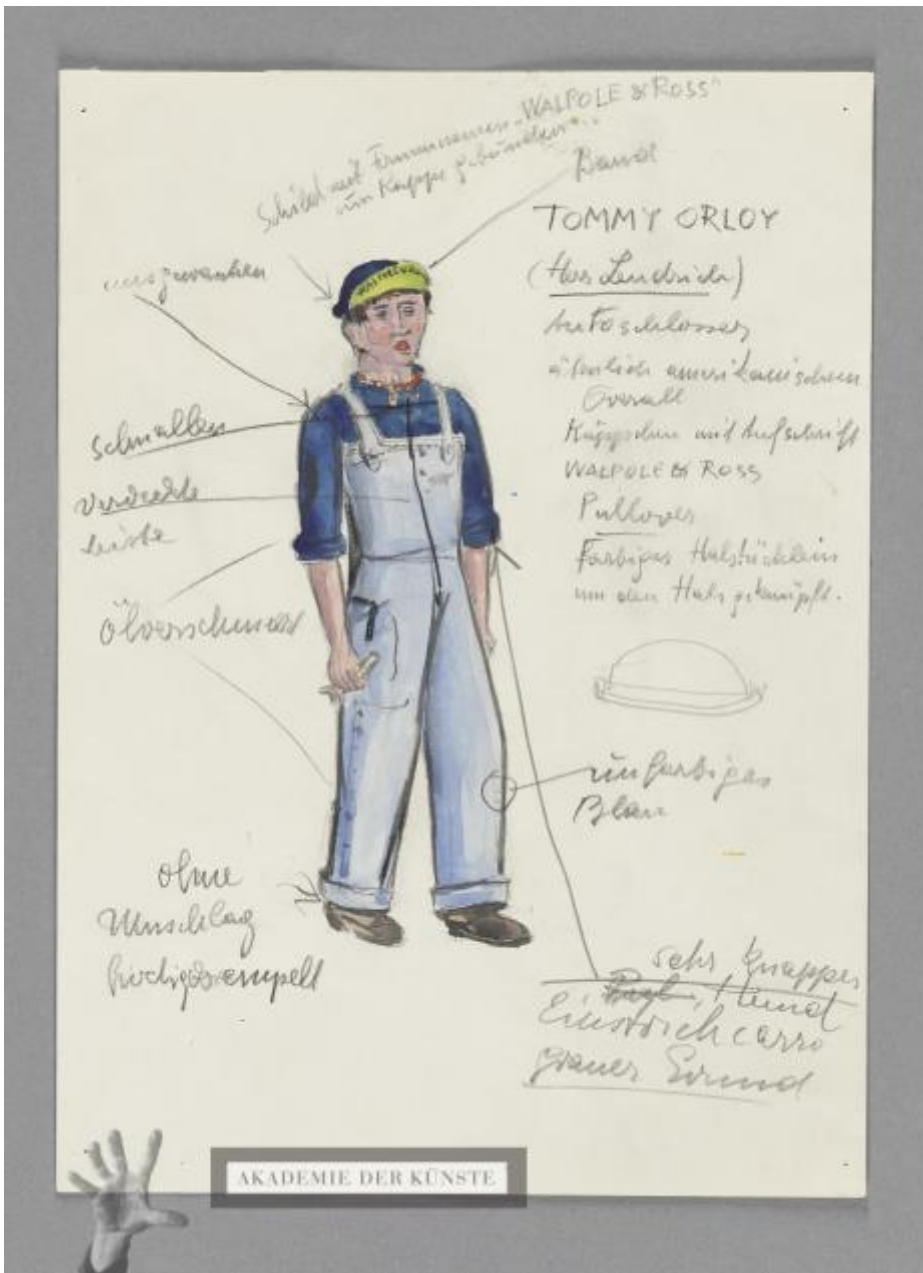 Schild mit Firmennamen „WALPOLE & ROSS"
um Kappe gebunden
Band
TOMMY ORLOY
(Herr Lendrich)
Autoschlosser
ähnlich amerikanischem
Overall
Käppchen mit Aufschrift
WALPOLE & ROSS
Pullover
Farbiges Halstüchlein
um den Hals geknüpft.
schnallen
verdeckte
leiste
Ölverschmiert
unfarbiges
Blau
ohne
Umschlag
hochgekrempelt
sehr knappes
Hemd
Einstrichcarro
grauer Grund
AKADEMIE DER KÜNSTE